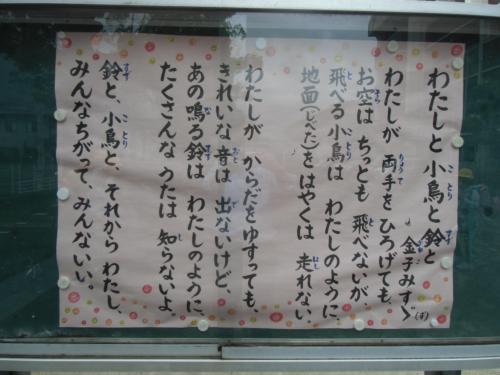 わたしと小鳥と鈴と
金子みすゞ(ず)
わたしが 両手を ひろげても、
お空は ちっとも 飛べないが、
飛べる 小鳥は わたしのように、
地面(じべた)を はやくは 走れない。
わたしが からだを ゆすっても、
きれいな 音は 出ないけど、
あの 鳴る 鈴は わたしのように、
たくさんな うたは 知らないよ。
鈴と、小鳥と、それから わたし、
みんなちがって、みんないい。